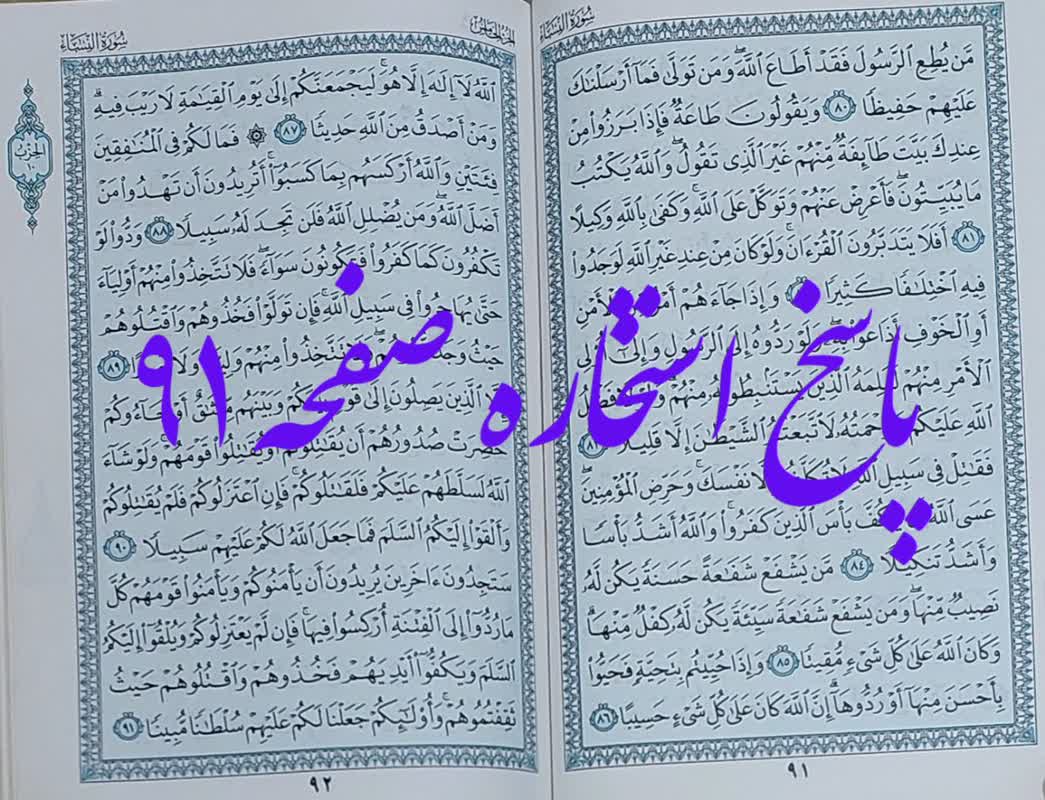 سُورَةُ النِّسَاءِ
مَّن يُطِعِ ٱلرَّسُولَ فَقَدْ أَطَاعَ ٱللَّهَ ۖ وَمَن تَوَلَّىٰ فَمَآ أَرْسَلْنَٰكَ
عَلَيْهِمْ حَفِيظًا ٨٠ وَيَقُولُونَ طَاعَةٌ فَإِذَا بَرَزُوا۟ مِنْ
عِندِكَ بَيَّتَ طَآئِفَةٌ مِّنْهُمْ غَيْرَ ٱلَّذِى تَقُولُ ۖ وَٱللَّهُ يَكْتُبُ
مَا يُبَيِّتُونَ ۖ فَأَعْرِضْ عَنْهُمْ وَتَوَكَّلْ عَلَى ٱللَّهِ ۚ وَكَفَىٰ بِٱللَّهِ وَكِيلًا
٨١ أَفَلَا يَتَدَبَّرُونَ ٱلْقُرْءَانَ ۚ وَلَوْ كَانَ مِنْ عِندِ غَيْرِ ٱللَّهِ لَوَجَدُوا۟
فِيهِ ٱخْتِلَٰفًا كَثِيرًا وَإِذَا جَآءَهُمْ أَمْرٌ ٱلْأَمْنِ
أَوِ ٱلْخَوْفِ أَذَاعُوا۟ بِهِۦ ۖ وَلَوْ رَدُّوهُ إِلَى ٱلرَّسُولِ وَإِلَىٰٓ أُو۟لِى
ٱلْأَمْرِ مِنْهُمْ لَعَلِمَهُ ٱلَّذِينَ يَسْتَنۢبِطُونَهُۥ مِنْهُمْ ۗ وَلَوْلَا فَضْلُ
ٱللَّهِ عَلَيْكُمْ وَرَحْمَتُهُۥ لَٱتَّبَعْتُمُ ٱلشَّيْطَٰنَ إِلَّا قَلِيلًا
فَقَٰتِلْ فِى سَبِيلِ ٱللَّهِ لَا تُكَلَّفُ إِلَّا نَفْسَكَ ۚ وَحَرِّضِ ٱلْمُؤْمِنِينَ ۖ
عَسَى ٱللَّهُ يَكُفَّ بَأْسَ ٱلَّذِينَ كَفَرُوا۟ ۚ وَٱللَّهُ أَشَدُّ بَأْسًا
وَأَشَدُّ تَنكِيلًا ٨٤ مَّن يَشْفَعْ شَفَٰعَةً حَسَنَةً يَكُن لَّهُۥ
نَصِيبٌ مِّنْهَا ۖ وَمَن يَشْفَعْ شَفَٰعَةً سَيِّئَةً يَكُن لَّهُۥ كِفْلٌ مِّنْهَا ۗ
وَكَانَ ٱللَّهُ عَلَىٰ كُلِّ شَىْءٍ مُّقِيتًا ٨٥ وَإِذَا حُيِّيتُم بِتَحِيَّةٍ فَحَيُّوا۟
بِأَحْسَنَ مِنْهَآ أَوْ رُدُّوهَآ ۗ إِنَّ ٱللَّهَ كَانَ عَلَىٰ كُلِّ شَىْءٍ حَسِيبًا ٨٦
٩١
الجزء الخامس
سُورَةُ النِّسَاءِ
ٱللَّهُ لَآ إِلَٰهَ إِلَّا هُوَ ۚ لَيَجْمَعَنَّكُمْ إِلَىٰ يَوْمِ ٱلْقِيَٰمَةِ لَا رَيْبَ فِيهِ ۗ
وَمَنْ أَصْدَقُ مِنَ ٱللَّهِ حَدِيثًا ٨٧ ۞ فَمَا لَكُمْ فِى ٱلْمُنَٰفِقِينَ
فِئَتَيْنِ وَٱللَّهُ أَرْكَسَهُم بِمَا كَسَبُوٓا۟ ۚ أَتُرِيدُونَ أَن تَهْدُوا۟ مَنْ
أَضَلَّ ٱللَّهُ ۖ وَمَن يُضْلِلِ ٱللَّهُ فَلَن تَجِدَ لَهُۥ سَبِيلًا ٨٨ وَدُّوا۟ لَوْ
تَكْفُرُونَ كَمَا كَفَرُوا۟ فَتَكُونُونَ سَوَآءً ۖ فَلَا تَتَّخِذُوا۟ مِنْهُمْ أَوْلِيَآءَ
حَتَّىٰ يُهَاجِرُوا۟ فِى سَبِيلِ ٱللَّهِ ۚ فَإِن تَوَلَّوْا۟ فَخُذُوهُمْ وَٱقْتُلُوهُمْ
حَيْثُ وَجَدتُّمُوهُمْ ۖ وَلَا تَتَّخِذُوا۟ مِنْهُمْ وَلِيًّا وَلَا ٨٩
ٱلَّذِينَ يَصِلُونَ إِلَىٰ قَوْمٍۭ بَيْنَكُمْ وَبَيْنَهُم مِّيثَٰقٌ أَوْ جَآءُوكُمْ
حَصِرَتْ صُدُورُهُمْ أَن يُقَٰتِلُوكُمْ أَوْ يُقَٰتِلُوا۟ قَوْمَهُمْ ۚ وَلَوْ شَآءَ
ٱللَّهُ لَسَلَّطَهُمْ عَلَيْكُمْ فَلَقَٰتَلُوكُمْ ۚ فَإِنِ ٱعْتَزَلُوكُمْ فَلَمْ يُقَٰتِلُوكُمْ
وَأَلْقَوْا۟ إِلَيْكُمُ ٱلسَّلَمَ فَمَا جَعَلَ ٱللَّهُ لَكُمْ عَلَيْهِمْ سَبِيلًا ٩٠
سَتَجِدُونَ ءَاخَرِينَ يُرِيدُونَ أَن يَأْمَنُوكُمْ وَيَأْمَنُوا۟ قَوْمَهُمْ كُلَّ
مَا رُدُّوٓا۟ إِلَى ٱلْفِتْنَةِ أُرْكِسُوا۟ فِيهَا ۚ فَإِن لَّمْ يَعْتَزِلُوكُمْ وَيُلْقُوٓا۟ إِلَيْكُمُ
ٱلسَّلَمَ وَيَكُفُّوٓا۟ أَيْدِيَهُمْ فَخُذُوهُمْ وَٱقْتُلُوهُمْ حَيْثُ
ثَقِفْتُمُوهُمْ ۚ وَأُو۟لَٰٓئِكُمْ جَعَلْنَا لَكُمْ عَلَيْهِمْ سُلْطَٰنًا مُّبِينًا ٩١
٩٢
الحِزْبُ
پاسخ استخاره صفحه ۹۱